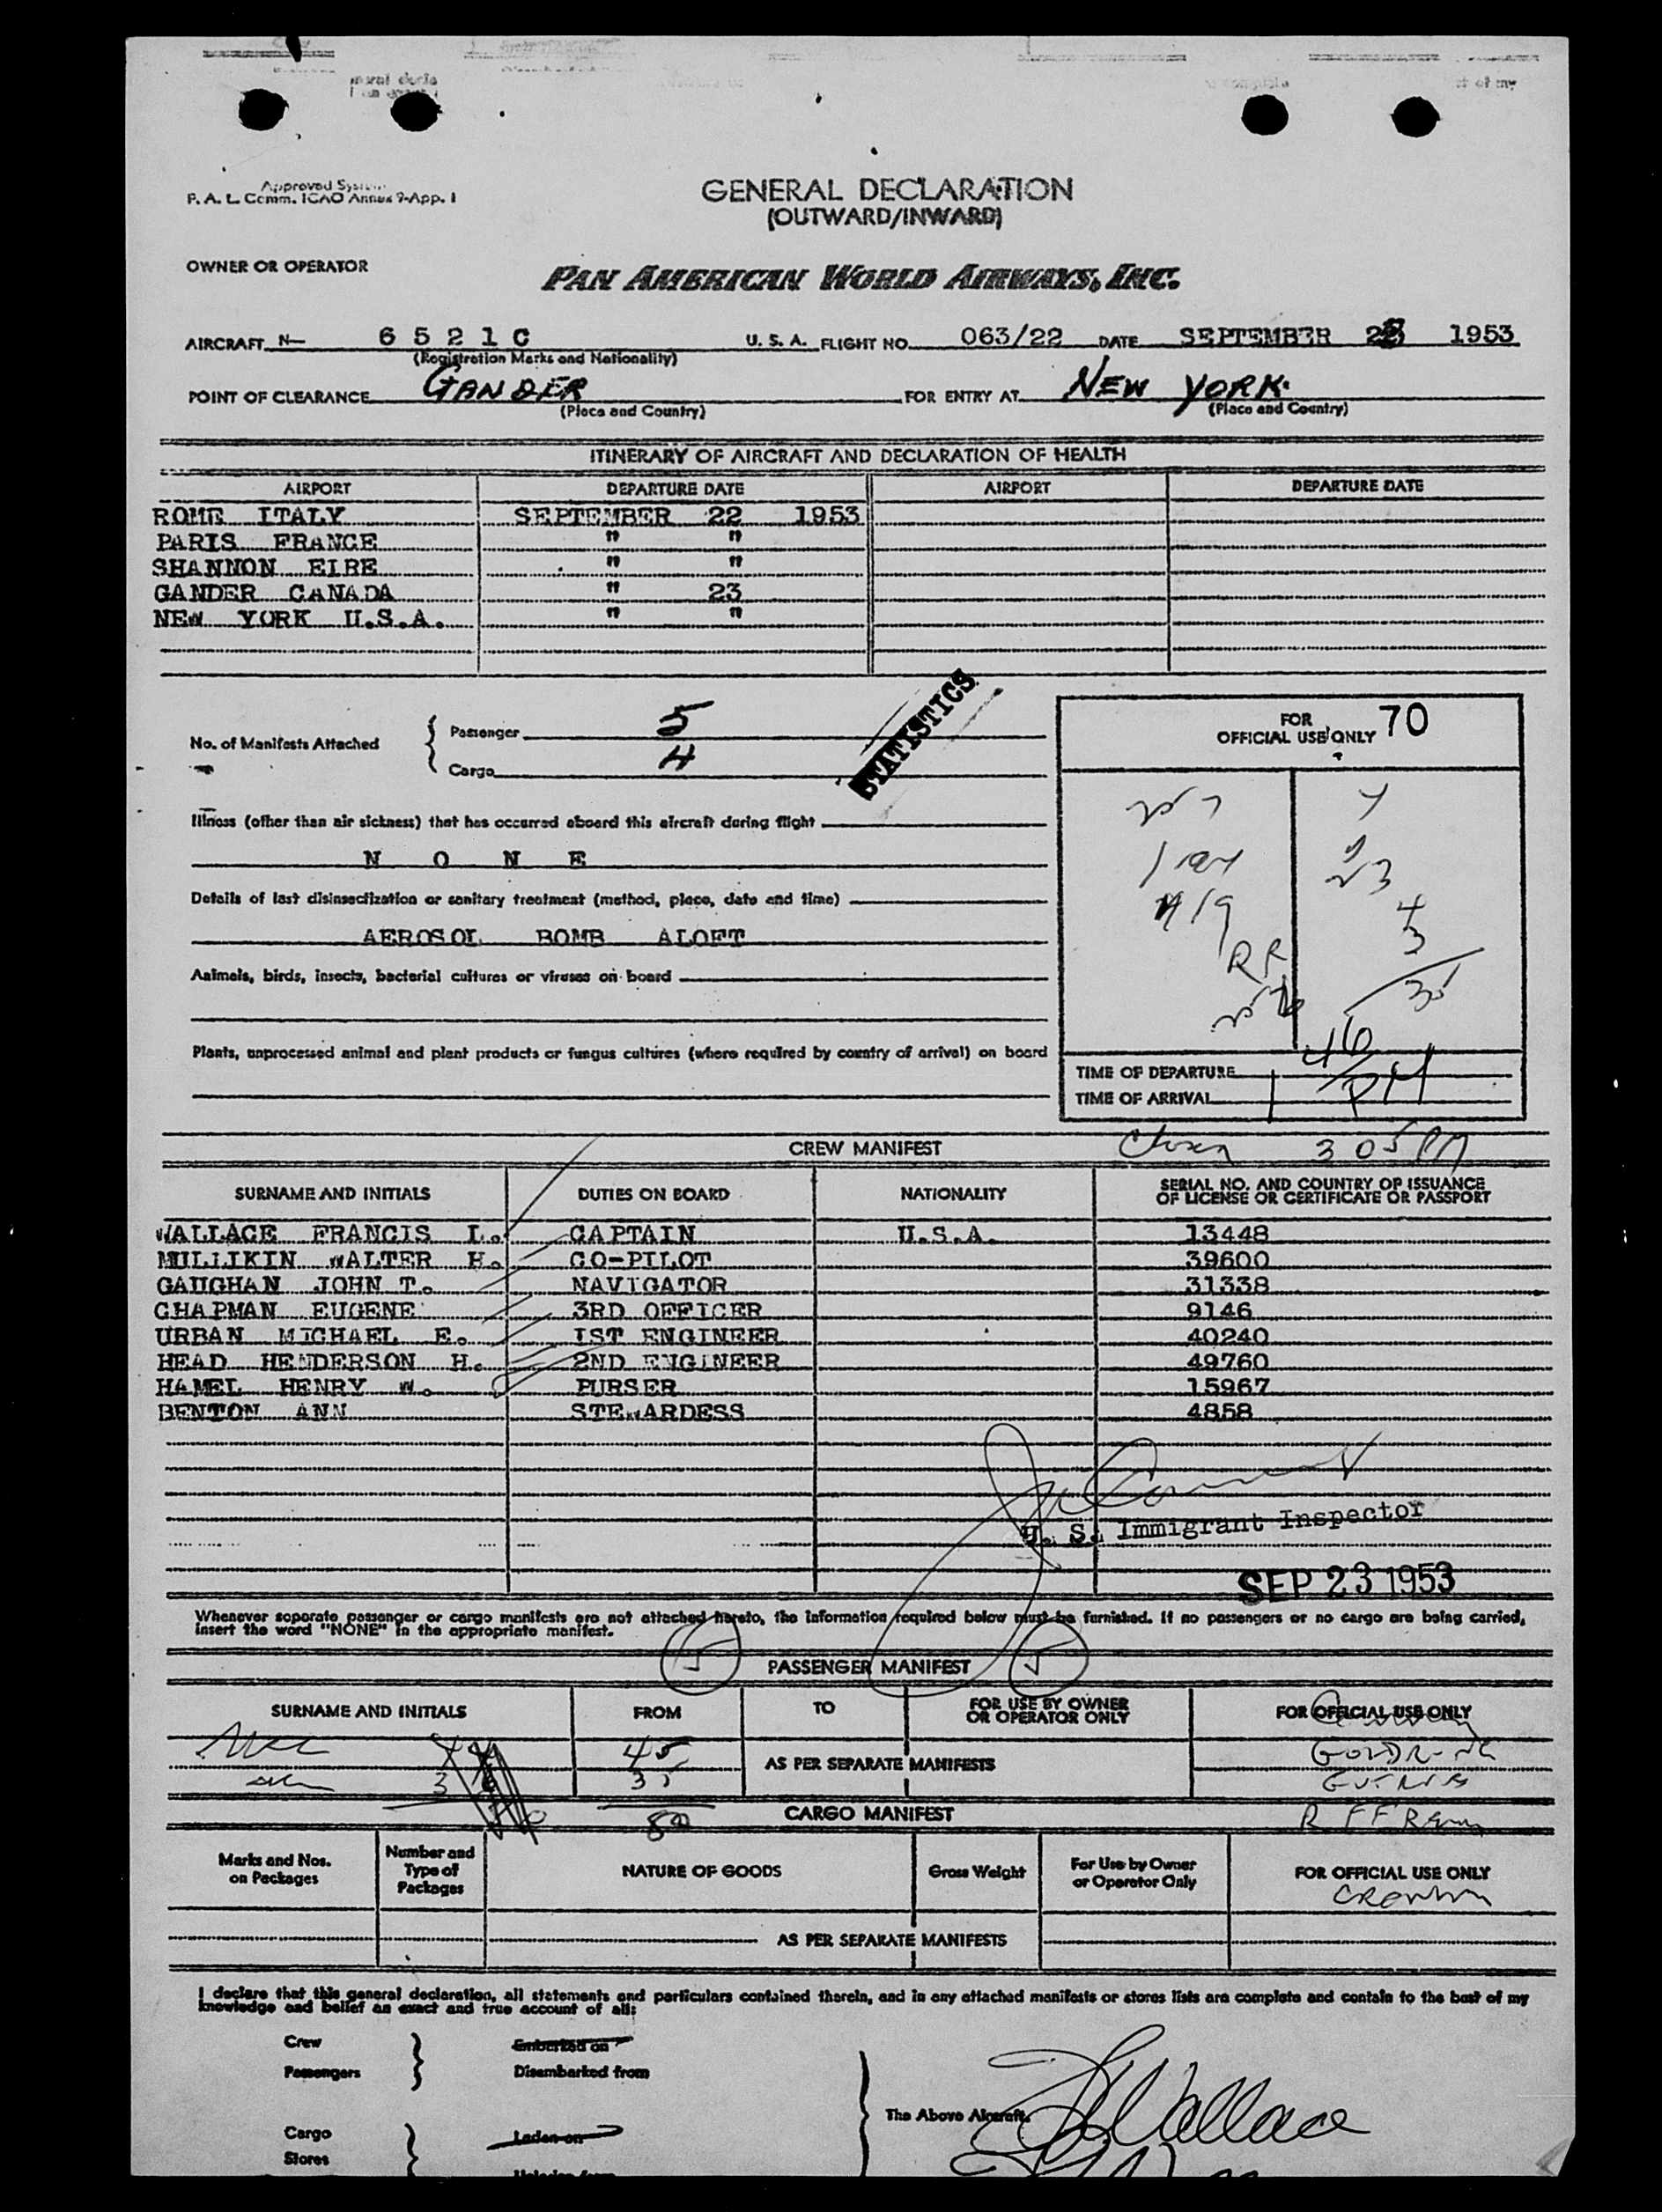 Approved System
F. A. L. Comm. ICAO Annex 9-App. I
GENERAL DECLARATION
(OUTWARD/INWARD)
OWNER OR OPERATOR
PAN AMERICAN WORLD AIRWAYS, INC.
AIRCRAFT N— 6 5 2 1 C U. S. A. FLIGHT NO. 063/22 DATE SEPTEMBER 1953
(Registration Marks and Nationality)
POINT OF CLEARANCE GANDER FOR ENTRY AT NEW YORK
(Place and Country) (Place and Country)
ITINERARY OF AIRCRAFT AND DECLARATION OF HEALTH
AIRPORT DEPARTURE DATE AIRPORT DEPARTURE DATE
ROME ITALY SEPTEMBER 22 1953
PARIS FRANCE " "
SHANNON EIRE " "
GANDER CANADA " 23
NEW YORK U.S.A. " "
STATISTICS
No. of Manifests Attached { Passenger 5
Cargo 4
FOR
OFFICIAL USE ONLY 70
Illness (other than air sickness) that has occurred aboard this aircraft during flight
N O N E
Details of last disinsectization or sanitary treatment (method, place, date and time)
AEROSOL BOMB ALOFT
Animals, birds, insects, bacterial cultures or viruses on board
Plants, unprocessed animal and plant products or fungus cultures (where required by country of arrival) on board
TIME OF DEPARTURE
TIME OF ARRIVAL 1 46 PM
CREW MANIFEST 305 PM
SURNAME AND INITIALS DUTIES ON BOARD NATIONALITY SERIAL NO. AND COUNTRY OF ISSUANCE
OF LICENSE OR CERTIFICATE OR PASSPORT
WALLACE FRANCIS L. CAPTAIN U.S.A. 13448
MILLIKIN WALTER H. CO-PILOT 39600
GAUGHAN JOHN T. NAVIGATOR 31338
CHAPMAN EUGENE 3RD OFFICER 9146
URBAN MICHAEL E. 1ST ENGINEER 40240
HEAD HENDERSON H. 2ND ENGINEER 49760
HAMEL HENRY W. PURSER 15967
BENTON ANN STEWARDESS 4858
U. S. Immigrant Inspector
SEP 23 1953
Whenever separate passenger or cargo manifests are not attached hereto, the information required below must be furnished. If no passengers or no cargo are being carried,
insert the word "NONE" in the appropriate manifest.
PASSENGER MANIFEST
SURNAME AND INITIALS FROM TO FOR USE BY OWNER
OR OPERATOR ONLY FOR OFFICIAL USE ONLY
45
AS PER SEPARATE MANIFESTS
35
80
CARGO MANIFEST
Marks and Nos.
on Packages Number and
Type of
Packages NATURE OF GOODS Gross Weight For Use by Owner
or Operator Only FOR OFFICIAL USE ONLY
AS PER SEPARATE MANIFESTS
I declare that this general declaration, all statements and particulars contained therein, and in any attached manifests or stores lists are complete and contain to the best of my
knowledge and belief an exact and true account of all:
Crew Embarked on
Passengers Disembarked from
The Above Aircraft.
Wallace
Cargo Laden on
Stores